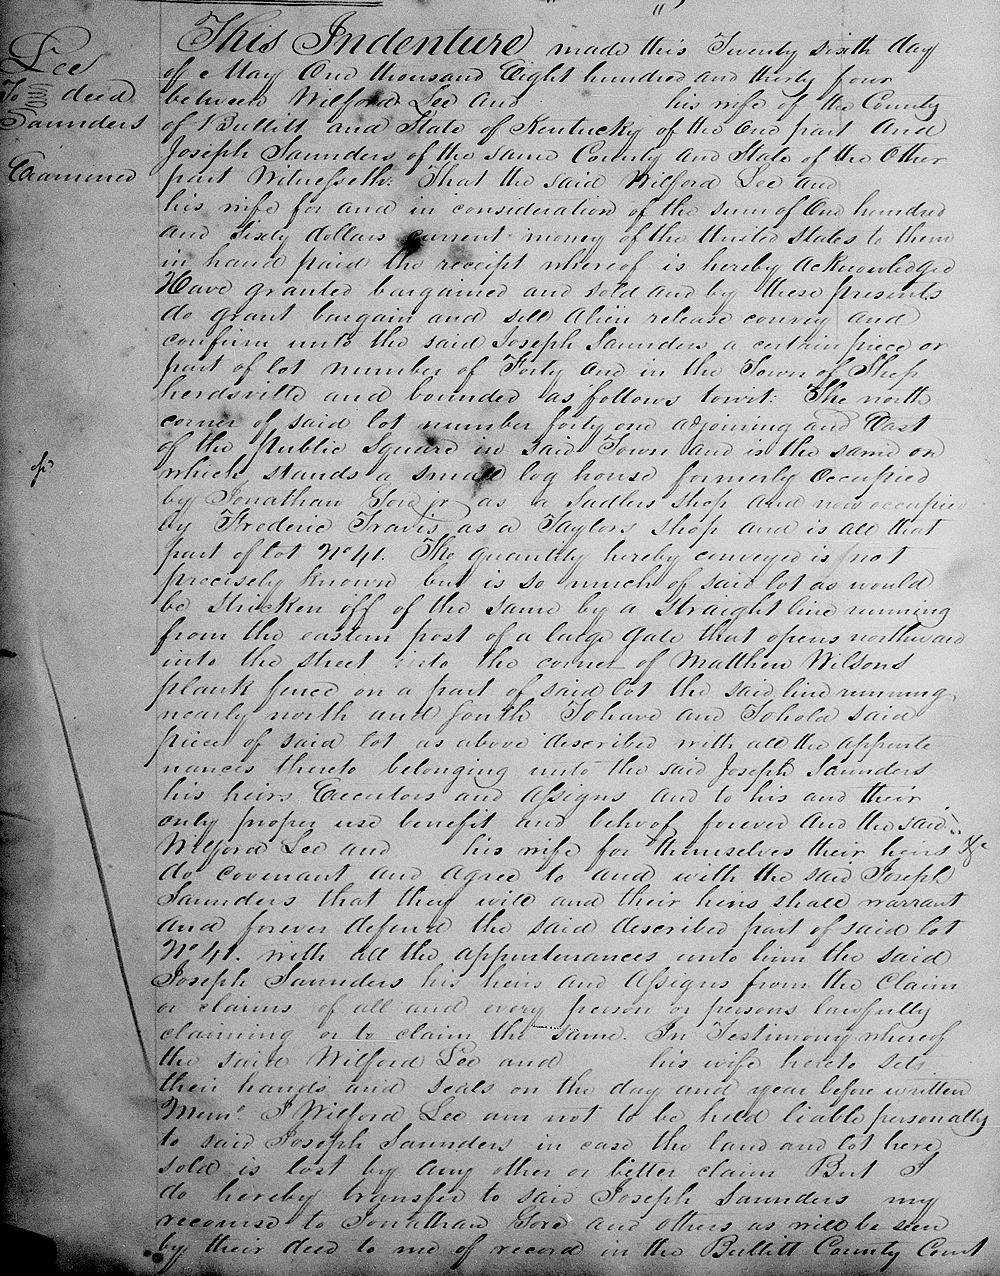 Lee
To deed
Saunders
Examined
This Indenture made this Twenty sixth day
of May One thousand Eight hundred and thirty four
between Wilford Lee and his wife of the County
of Bullitt and State of Kentucky of the One part And
Joseph Saunders of the same County and State of the Other
part Witnesseth: That the said Wilford Lee and
his wife for and in consideration of the sum of One hundred
and Sixty dollars current money of the United States to them
in hand paid the receipt whereof is hereby acknowledged
Have granted bargained and sold and by these presents
do grant bargain and sell Alien release convey and
confirm unto the said Joseph Saunders a certain piece or
part of lot number of Forty One in the Town of Shep
herdsville and bounded as follows towit: The north
corner of said lot number forty one adjoining and East
of the Public Square in said Town and is the same on
which stands a small log house formerly Occupied
by Jonathan Gore jr as a Sadlers shop and now occupied
by Frederic Travis as a Taylors shop and is all that
part of lot No 41. The quantity hereby conveyed is not
precisely known but is so much of said lot as would
be stricken off of the same by a straight line running
from the eastern post of a large Gate that opens northward
into the street into the corner of Matthew Wilsons
plank fence on a part of said lot the said line running
nearly north and South To have and To hold said
piece of said lot as above described with all the appurte
nances thereto belonging unto the said Joseph Saunders
his heirs Executors and Assigns and to his and their
only proper use benefit and behoof forever And the said
Wilford Lee and his wife for themselves their heirs &c
do covenant and agree to and with the said Joseph
Saunders that they will and their heirs shall warrant
and forever defend the said described part of said lot
No 41. with all the appurtenances unto him the said
Joseph Saunders his heirs and Assigns from the Claim
or claims of all and every person or persons lawfully
claiming or to claim the same. In Testimony whereof
the said Wilford Lee and his wife hereto sets
their hands and seals on the day and year before written
Memo I Wilford Lee am not to be held liable personally
to said Joseph Saunders in case the land and lot here
sold is lost by any other or better claim But I
do hereby transfer to said Joseph Saunders my
recourse to Jonathan Gore and others as will be seen
by their deed to me of record in the Bullitt County Court